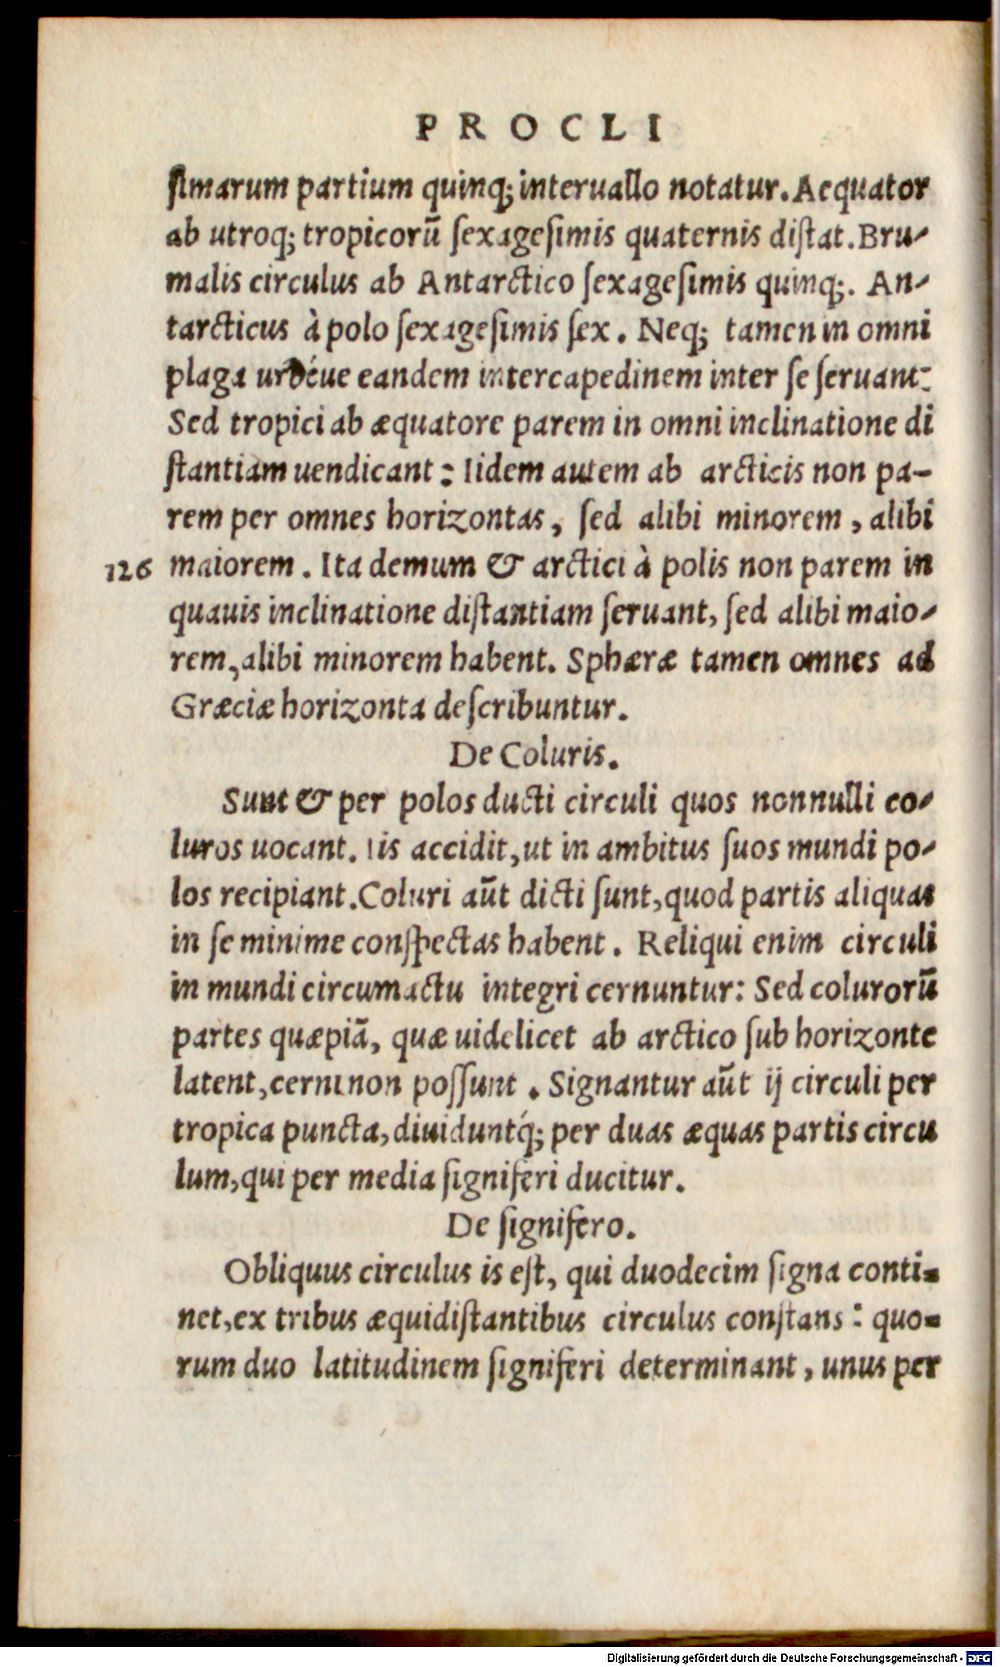 PROCLI
simarum partium quinq; interuallo notatur. Aequator
ab utroq; tropicorũ sexagesimis quaternis distat. Bru-
malis circulus ab Antarctico sexagesimis quinq;. An-
tarcticus à polo sexagesimis sex. Neq; tamen in omni
plaga urbéue eandem intercapedinem inter se seruant:
Sed tropici ab æquatore parem in omni inclinatione di
stantiam uendicant: Iidem autem ab arcticis non pa-
rem per omnes horizontas, sed alibi minorem, alibi
126 maiorem. Ita demum & arctici à polis non parem in
quauis inclinatione distantiam seruant, sed alibi maio-
rem, alibi minorem habent. Sphæræ tamen omnes ad
Græciæ horizonta describuntur.
De Coluris.
Sunt & per polos ducti circuli quos nonnulli co-
luros uocant. Iis accidit, ut in ambitus suos mundi po-
los recipiant. Coluri aũt dicti sunt, quod partis aliquas
in se minime conspectas habent. Reliqui enim circuli
in mundi circumactu integri cernuntur: Sed colurorũ
partes quæpiã, quæ uidelicet ab arctico sub horizonte
latent, cerni non possunt. Signantur aũt ij circuli per
tropica puncta, diuiduntq́; per duas æquas partis circu
lum, qui per media signiferi ducitur.
De signifero.
Obliquus circulus is est, qui duodecim signa conti-
net, ex tribus æquidistantibus circulus constans: quo-
rum duo latitudinem signiferi determinant, unus per
Digitalisierung gefördert durch die Deutsche Forschungsgemeinschaft - DFG